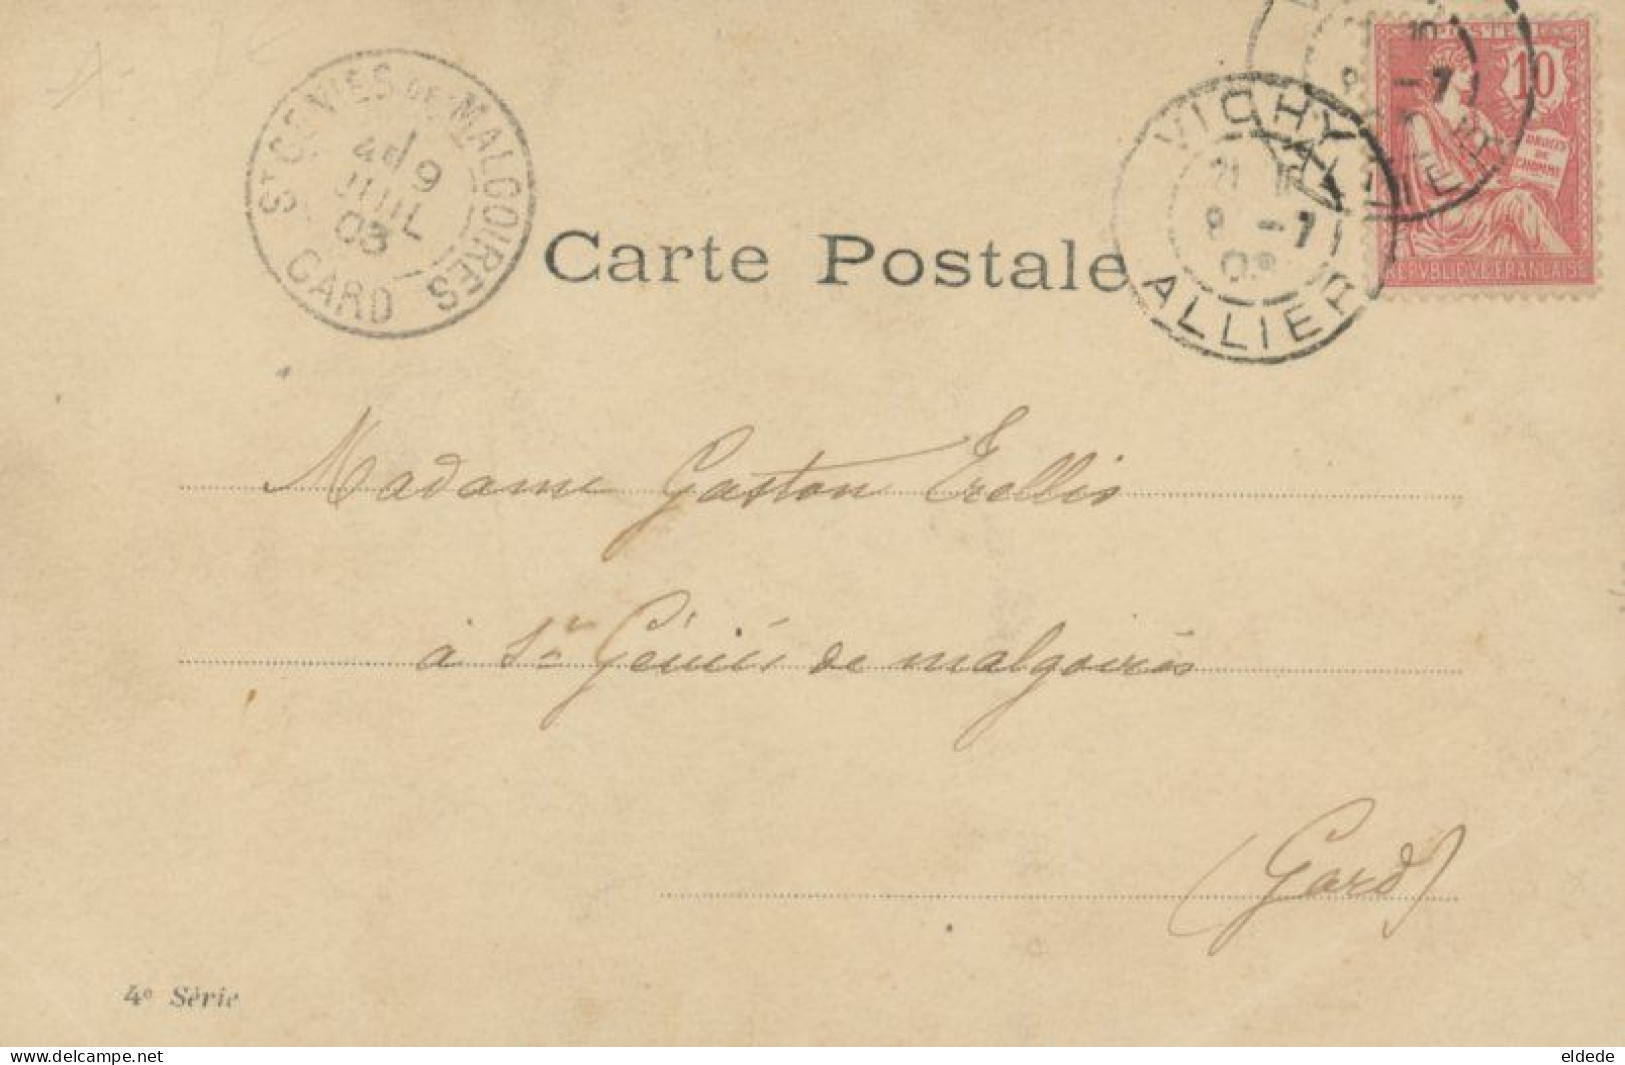 St GENIES DE MALGOIRES
9
JUIL
03
GARD
VICHY
21 10
8 -7
03
ALLIER
10
8 -7
POSTES
10
DROITS
DE
L'HOMME
REPVBLIQVE FRANCAISE
Carte Postale
Madame Gaston
à St Géniès de malgoirès
(Gard)
4e Série
delcampe.net
eldede